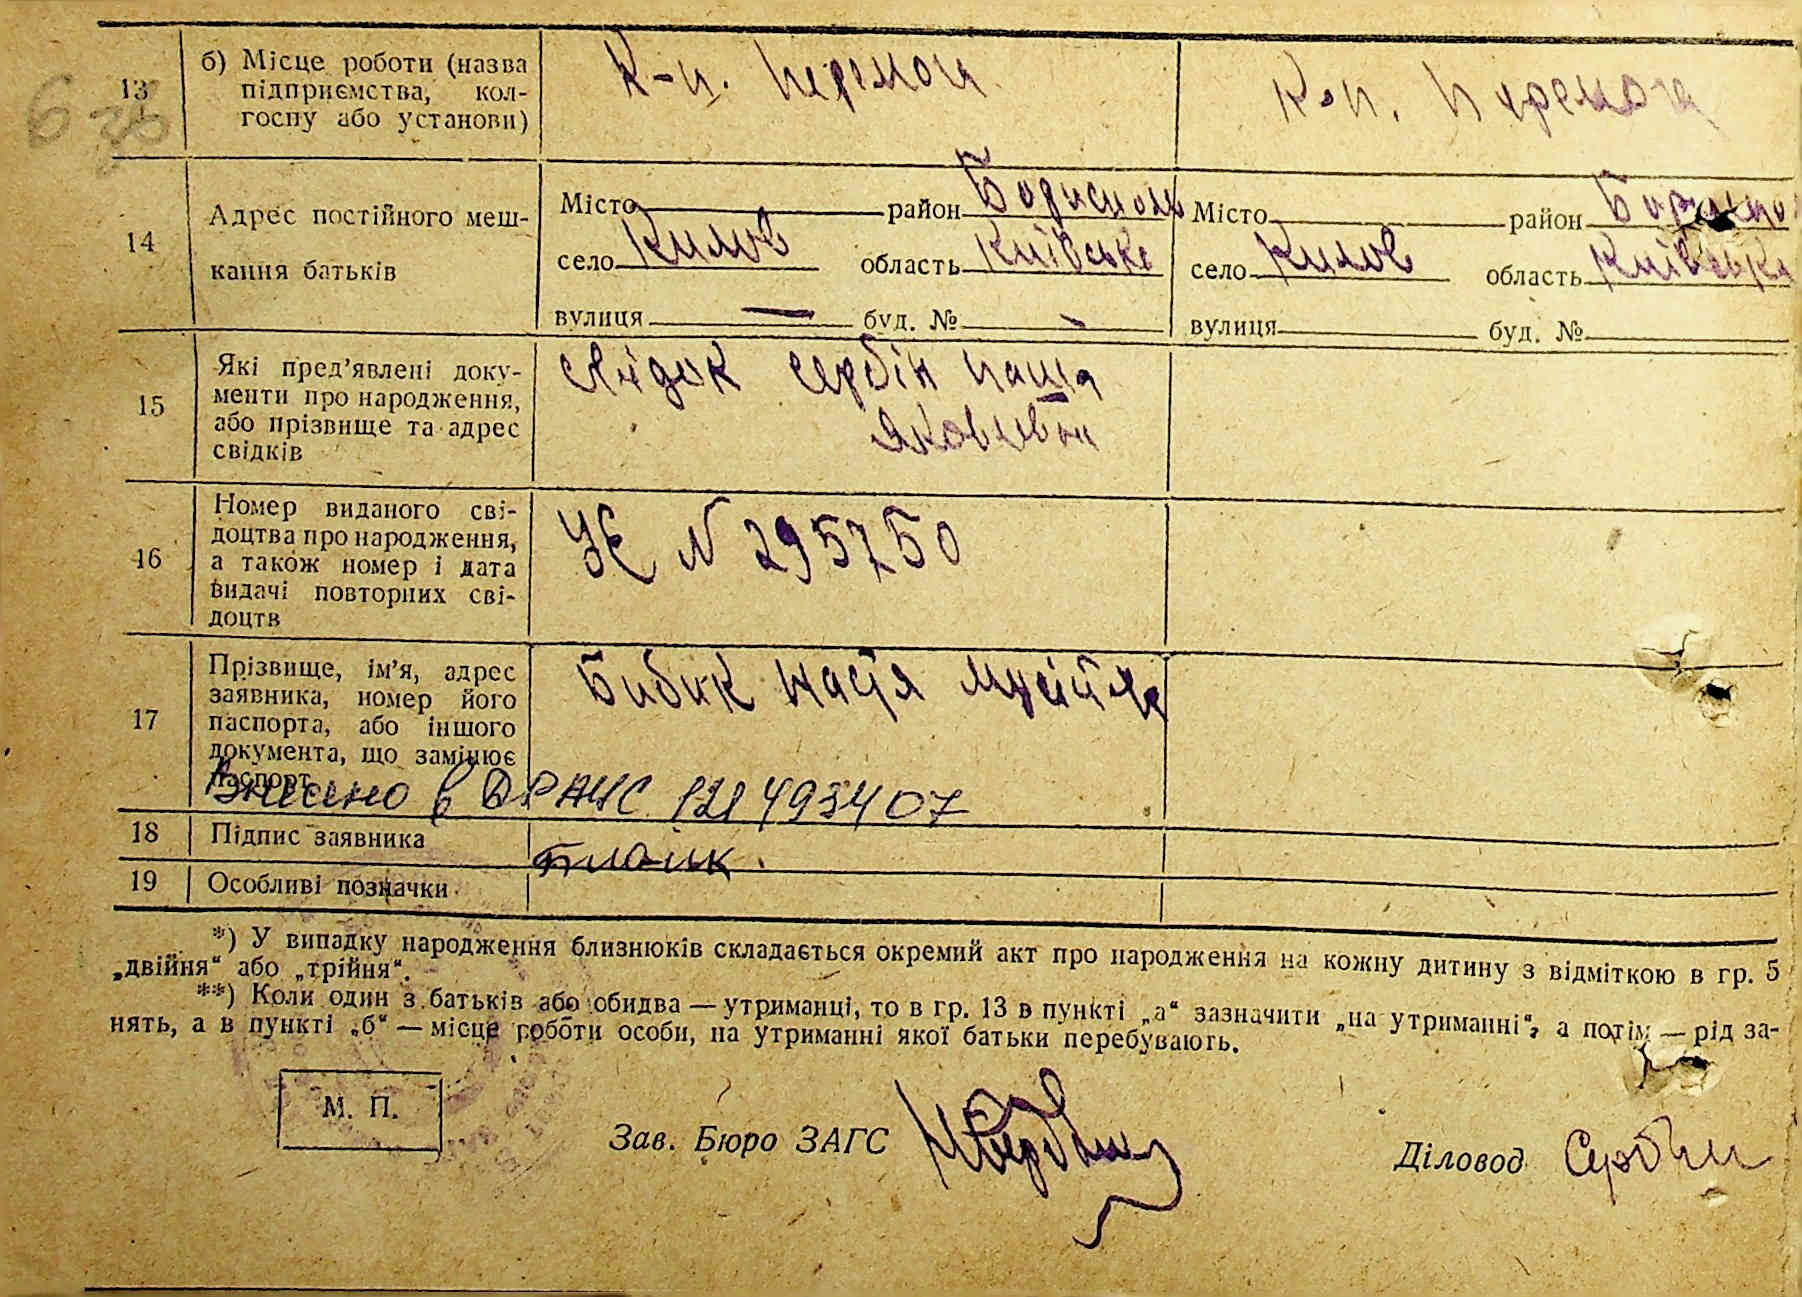 13 б) Місце роботи (назва підприємства, колгоспу або установи) К-п. Перемога К-п. Перемога
14 Адрес постійного мешкання батьків
Місто район Бориспол Місто район Бориспо
село Килов область Київська село Килов область Київська
вулиця — буд. № - вулиця буд. №
15 Які пред'явлені документи про народження, або прізвище та адрес свідків
свідок Сербін Паша
Яковлівна
16 Номер виданого свідоцтва про народження, а також номер і дата видачі повторних свідоцтв
УЄ N 295750
17 Прізвище, ім'я, адрес заявника, номер його паспорта, або іншого документа, що замінює паспорт
Бибик Настя
Внесено в ДРАЦС 121493407
18 Підпис заявника
19 Особливі позначки
*) У випадку народження близнюків складається окремий акт про народження на кожну дитину з відміткою в гр. 5
„двійня“ або „трійня“.
**) Коли один з батьків або обидва — утриманці, то в гр. 13 в пункті „а“ зазначити „на утриманні“, а потім — рід за-
нять, а в пункті „б“ — місце роботи особи, на утриманні якої батьки перебувають.
М. П.
Зав. Бюро ЗАГС
Діловод Сербин